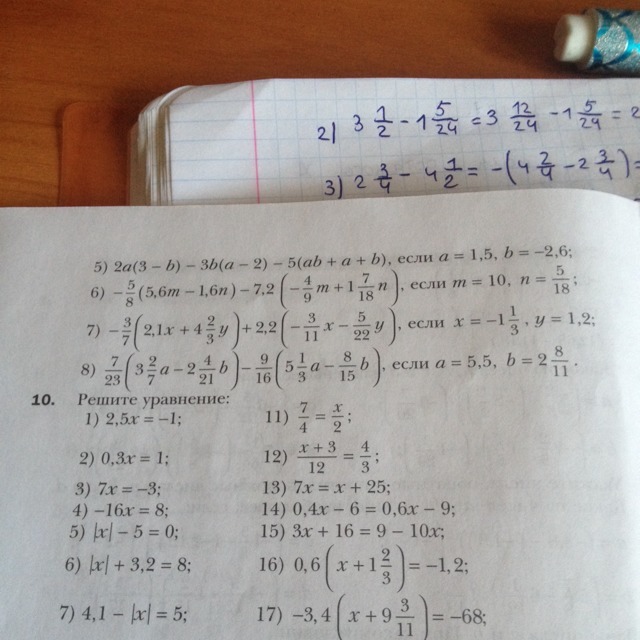 2) 3 1/2 - 1 5/24 = 3 12/24 - 1 5/24 = 2
3) 2 3/4 - 4 1/2 = -(4 2/4 - 2 3/4) =
5) 2a(3 − b) − 3b(a − 2) − 5(ab + a + b), если a = 1,5, b = −2,6;
6) −5/8(5,6m − 1,6n) − 7,2(−4/9 m + 1 7/18 n), если m = 10, n = 5/18;
7) −3/7(2,1x + 4 2/3 y) + 2,2(−3/11 x − 5/22 y), если x = −1 1/3, y = 1,2;
8) 7/23(3 2/7 a − 2 4/21 b) − 9/16(5 1/3 a − 8/15 b), если a = 5,5, b = 2 8/11.
10. Решите уравнение:
1) 2,5x = −1;
2) 0,3x = 1;
3) 7x = −3;
4) −16x = 8;
5) |x| − 5 = 0;
6) |x| + 3,2 = 8;
7) 4,1 − |x| = 5;
11) 7/4 = x/2;
12) (x + 3)/12 = 4/3;
13) 7x = x + 25;
14) 0,4x − 6 = 0,6x − 9;
15) 3x + 16 = 9 − 10x;
16) 0,6(x + 1 2/3) = −1,2;
17) −3,4(x + 9 3/11) = −68;